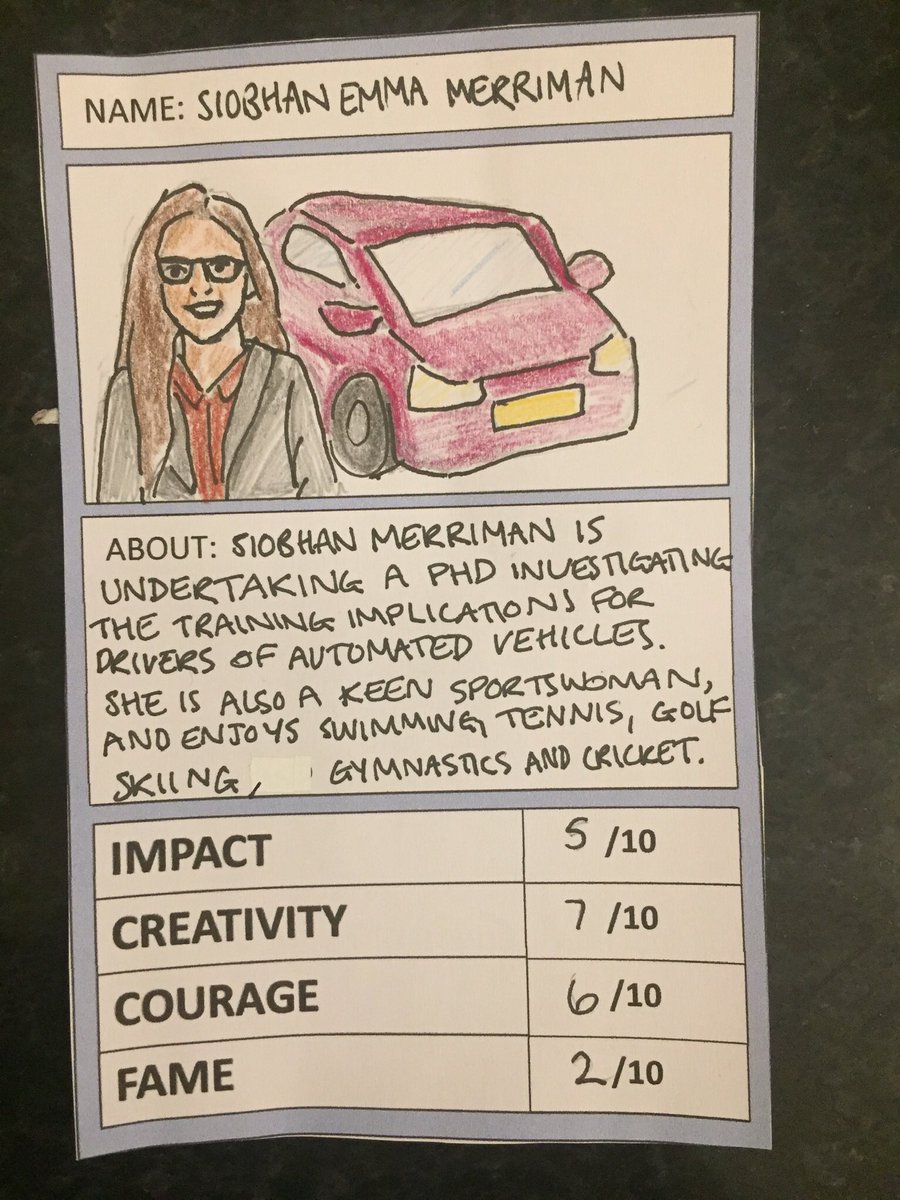 NAME: SIOBHAN EMMA MERRIMAN
ABOUT: SIOBHAN MERRIMAN IS
UNDERTAKING A PHD INVESTIGATING
THE TRAINING IMPLICATIONS FOR
DRIVERS OF AUTOMATED VEHICLES.
SHE IS ALSO A KEEN SPORTSWOMAN,
AND ENJOYS SWIMMING, TENNIS, GOLF
SKIING, GYMNASTICS AND CRICKET.
IMPACT 5 /10
CREATIVITY 7 /10
COURAGE 6 /10
FAME 2 /10